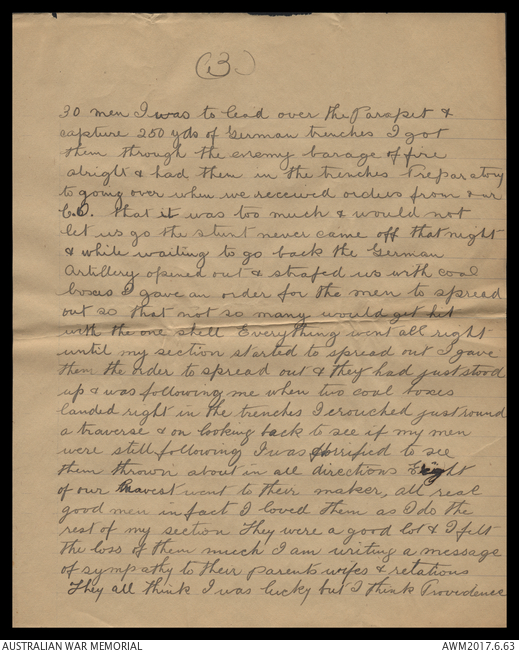 (3)
30 men I was to lead over the Parapet &
capture 250 yds of German trenches I got
them through the enemy barage of fire
alright & had them in the trenches Preparatory
to going over when we received orders from our
C.O. that it was too much & would not
let us go the stunt never came off that night
& while waiting to go back the German
Artillery opened out & strafed us with coal
boxes I gave an order for the men to spread
out so that not so many would get hit
with the one shell Everything went all right
until my section started to spread out I gave
them the order to spread out & they had just stood
up & was following me when two coal boxes
landed right in the trenches I crouched just round
a traverse & on looking back to see if my men
were still following I was horrified to see
them thrown about in all directions Eight
of our bravest went to their maker, all real
good men in fact I loved them as I do the
rest of my section They were a good lot & I felt
the loss of them much I am writing a message
of sympathy to their parents wifes & relations
They all think I was lucky but I think Providence
AUSTRALIAN WAR MEMORIAL
AWM2017.6.63